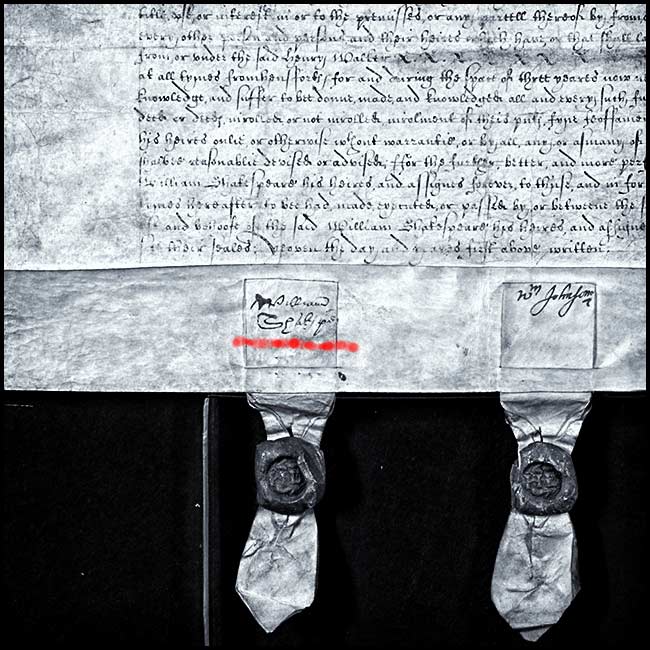 title, use, or interest in or to the premisses, or any parcell thereof by, from
every, other person and persons, and their heires which have or that shall
from, or under the said Henry Walker
at all tymes fromhensforth, for and during the space of three yeares now
knowledge, and suffer to bee donne, made, and knowledged all and every, such,
deede or deedes, inrolled, or not inrolled, inrolment of theis fyne, feoffament
his heires onlie or otherwise without warrantie, or by, all, any, or asmany, of
shalbee reasonablie devised or advised; ffor the further, better, and more
William Shakespeare his heires, and assignes forever, to thuse, and in
times hereafter to bee had, made, executed, or passed by, or betweene the
use and behoofe of the said William Shakespeare his heires, and assignes
sett their seales; Yeoven the day, and yeares first above written;
William
Wm Johnson